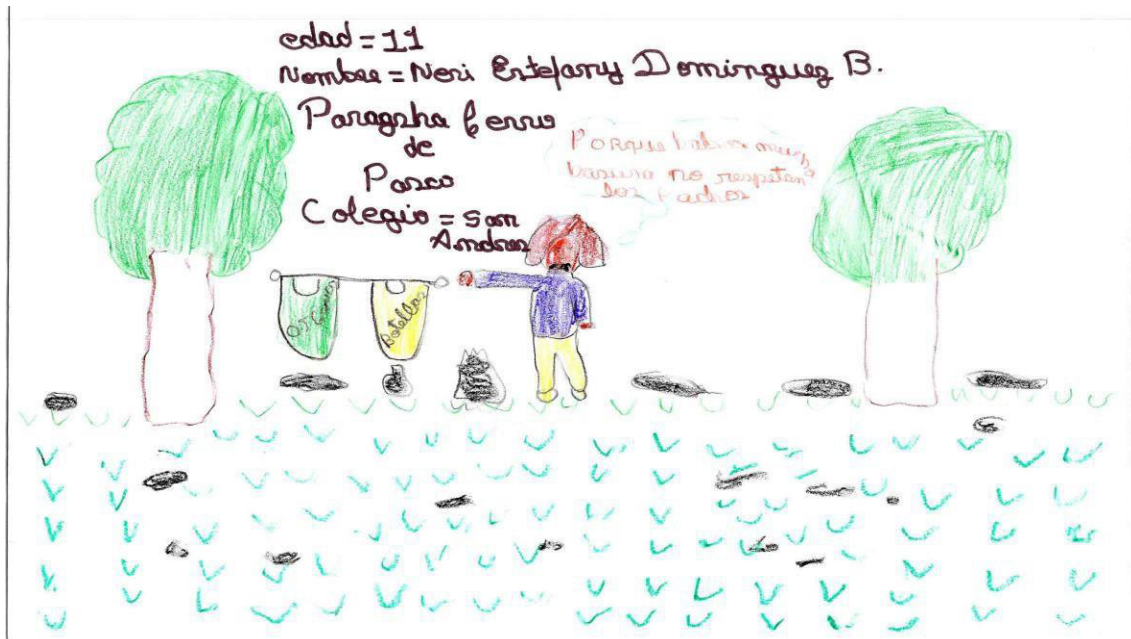 edad = 11
Nombre = Neri Estefany Dominguez B.
Paragsha Cerro
de
Pasco
Colegio = San
Andres
Porque
basura no respetan
los tachos
Botellas